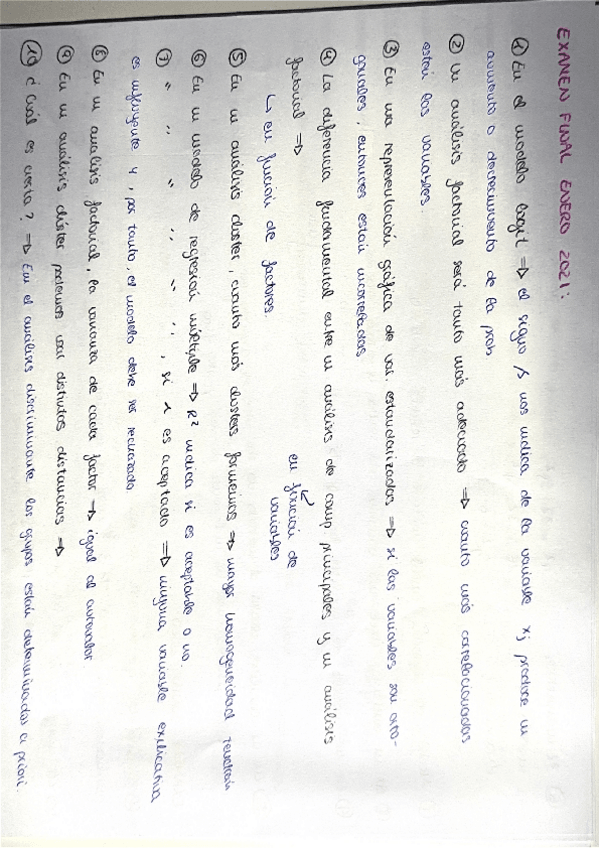 EXAMEN FINAL ENERO 2021:
① En el modelo logit ⇒ el signo β nos indica de la variable xj produce un
aumento o decrecimiento de la prob
② Un análisis factorial será tanto más adecuado ⇒ cuanto más correlacionadas
estén las variables.
③ En una representación gráfica de var. estandarizadas ⇒ si las variables son orto-
gonales, entonces están incorreladas
④ La diferencia fundamental entre un análisis de comp. principales y un análisis
factorial ⇒
↳ en función de factores.
en función de
variables
⑤ En un análisis cluster, cuanto más clusters formemos → mayor homogeneidad tendrán
⑥ En un modelo de regresión múltiple ⇒ R² indica si es aceptable o no.
⑦ " " " " " ", si λ es aceptado ⇒ ninguna variable explicativa
es influyente y, por tanto, el modelo debe ser rechazado
⑧ En un análisis factorial, la varianza de cada factor → igual al autovalor
⑨ En un análisis clúster podemos usar distintas distancias ⇒
⑩ ¿Cuál es cierta? ⇒ En el análisis discriminante los grupos están determinados a priori.